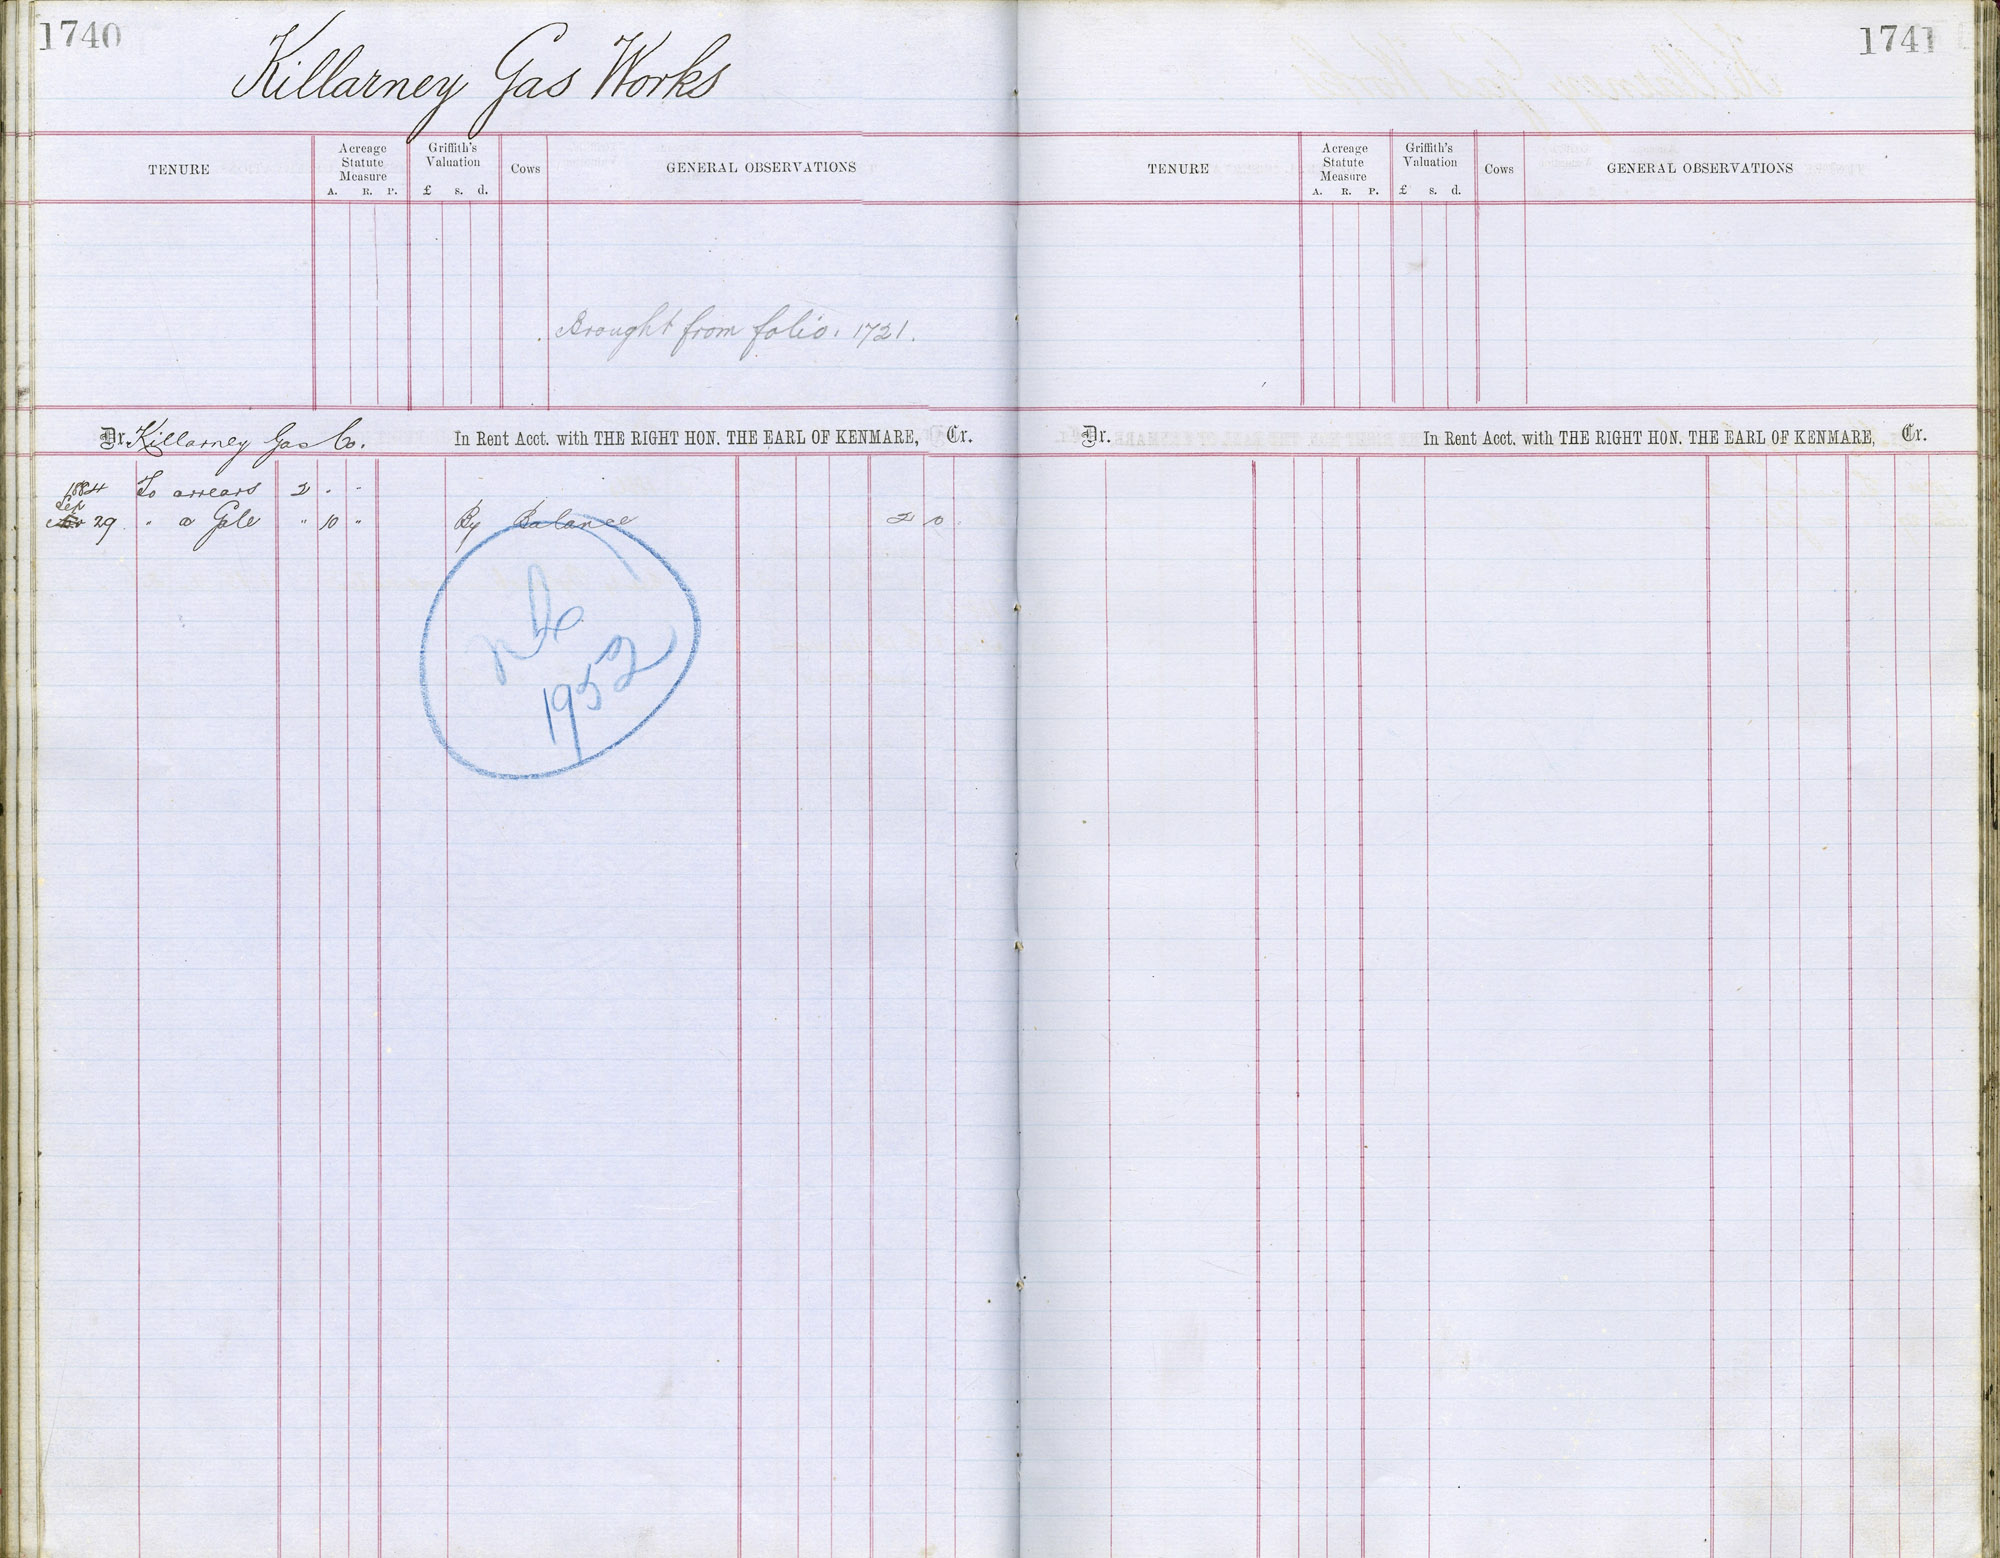 1740
Killarney Gas Works
TENURE
Acreage Statute Measure
A. R. P.
Griffith's Valuation
£ s. d.
Cows
GENERAL OBSERVATIONS
Brought from folio. 1721.
Dr. Killarney Gas Co. In Rent Acct. with THE RIGHT HON. THE EARL OF KENMARE, Cr.
1884 To arrears 2 " "
Sep 29 " a Gale " 10 " By Balance 2 10
1952
1741
TENURE
Acreage Statute Measure
A. R. P.
Griffith's Valuation
£ s. d.
Cows
GENERAL OBSERVATIONS
Dr. In Rent Acct. with THE RIGHT HON. THE EARL OF KENMARE, Cr.